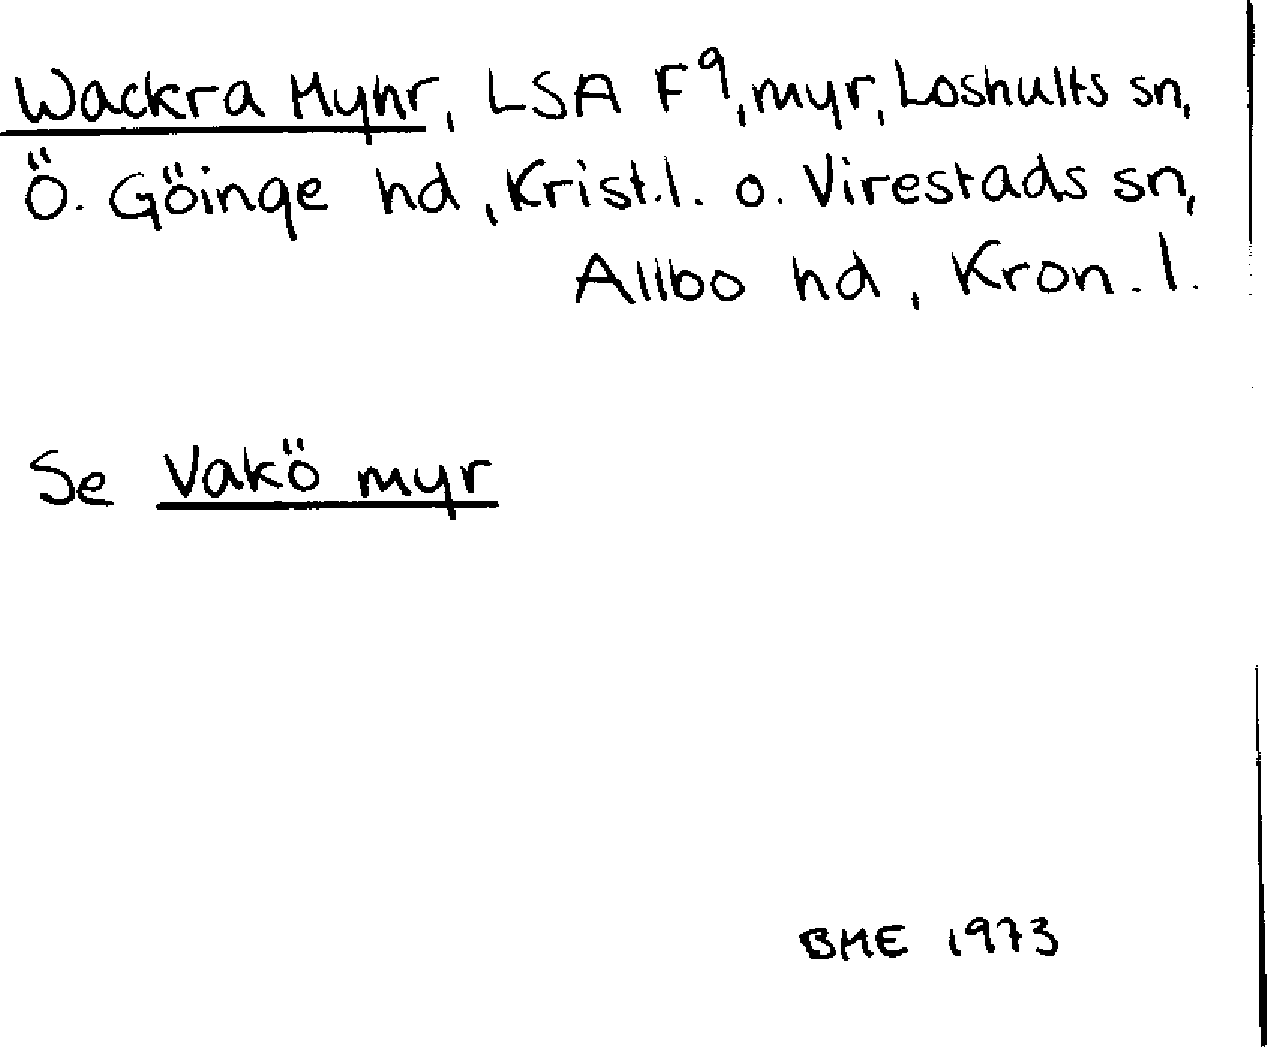 Wackra Myhr, LSA F9, myr, Loshults sn,
Ö. Göinge hd, Krist.l. o. Virestads sn,
Allbo hd, Kron.l.
Se Vakö myr
BME 1973